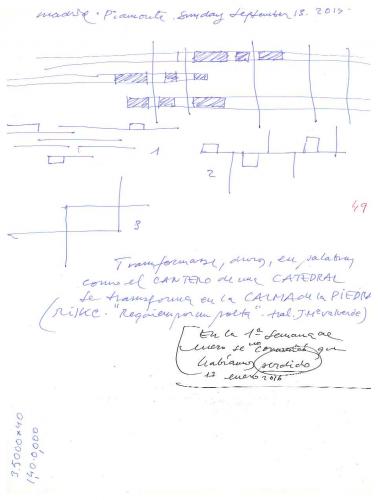 madrid · Piamonte. Sunday September 13. 2015.
1
2
49
3
Transformarse, duro, en palabras
como el CANTERO de una CATEDRAL
se transforma en la CALMA de la PIEDRA
(RILKE. "Requiem por un poeta" - trad. J.Mª Valverde)
En la 1ª semana de
enero se no que
habíamos perdido
13 enero 2016
3.5000 x 40
140.0,000